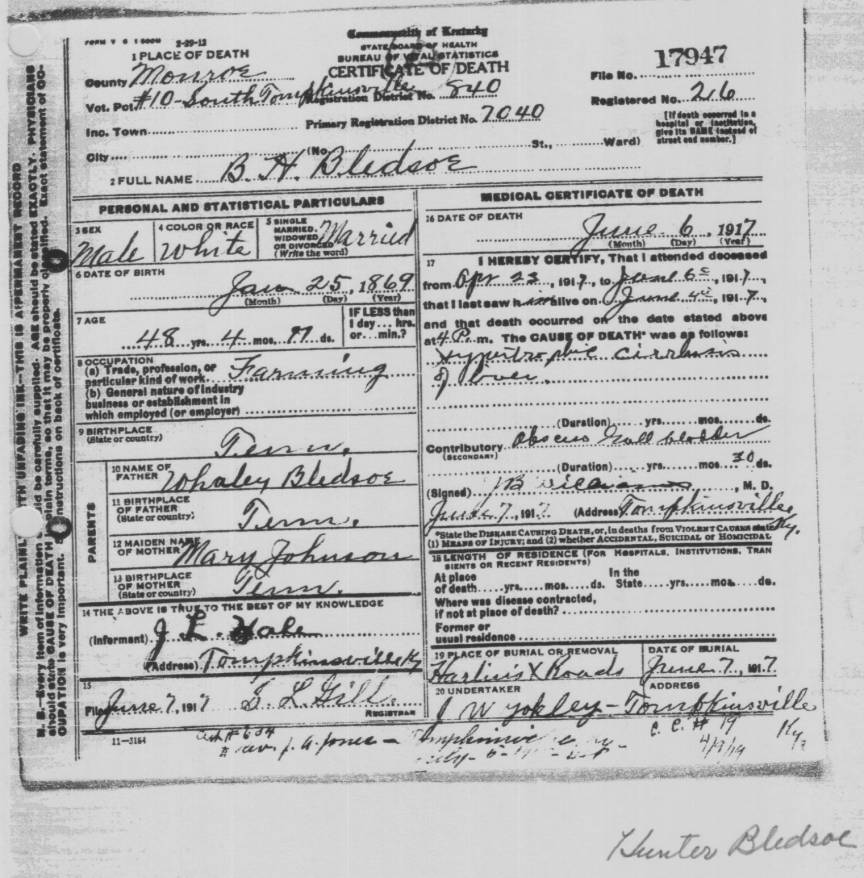 FORM V S 1 2-29-12
Commonwealth of Kentucky
STATE BOARD OF HEALTH
BUREAU OF VITAL STATISTICS
CERTIFICATE OF DEATH
File No. 17947
Registered No. 216
[If death occurred in a hospital or institution, give its NAME instead of street and number.]
1 PLACE OF DEATH
County Monroe
Vot. Pct. #10-South Tompkinsville Registration District No. 840
Inc. Town Primary Registration District No. 7040
City (No. St., Ward)
2 FULL NAME B. H. Bledsoe
PERSONAL AND STATISTICAL PARTICULARS
3 SEX Male
4 COLOR OR RACE White
5 SINGLE MARRIED, WIDOWED OR DIVORCED (Write the word) Married
6 DATE OF BIRTH
Jan 25, 1869
(Month) (Day) (Year)
7 AGE
48 yrs. 4 mos. 11 ds.
IF LESS than 1 day... hrs. or... min.?
8 OCCUPATION
(a) Trade, profession, or particular kind of work Farming
(b) General nature of industry
business or establishment in
which employed (or employer)
9 BIRTHPLACE
(State or country) Tenn.
PARENTS
10 NAME OF FATHER Whaley Bledsoe
11 BIRTHPLACE OF FATHER (State or country) Tenn.
12 MAIDEN NAME OF MOTHER Mary Johnson
13 BIRTHPLACE OF MOTHER (State or country) Tenn.
14 THE ABOVE IS TRUE TO THE BEST OF MY KNOWLEDGE
(Informant) J. L. Hale
(Address) Tompkinsville Ky
15
Filed June 7, 1917 L Gill
REGISTRAR
11-3184
MEDICAL CERTIFICATE OF DEATH
16 DATE OF DEATH
June 6, 1917
(Month) (Day) (Year)
17 I HEREBY CERTIFY, That I attended deceased
from Apr 23, 1917, to June 6, 1917,
that I last saw him alive on June 4, 1917,
and that death occurred on the date stated above
at 4 P. m. The CAUSE OF DEATH* was as follows:
Hypertrophic cirrhosis
of liver.
(Duration) yrs. mos. ds.
Contributory Abscess Gall bladder
(SECONDARY)
(Duration) yrs. mos. 30 ds.
(Signed) Williams, M. D.
June 7, 1917 (Address) Tompkinsville Ky.
*State the DISEASE CAUSING DEATH, or, in deaths from VIOLENT CAUSES state
(1) MEANS OF INJURY; and (2) whether ACCIDENTAL, SUICIDAL OR HOMICIDAL
18 LENGTH OF RESIDENCE (FOR HOSPITALS, INSTITUTIONS, TRAN
SIENTS OR RECENT RESIDENTS)
At place of death yrs. mos. ds. In the State yrs. mos. ds.
Where was disease contracted,
if not at place of death?
Former or
usual residence
19 PLACE OF BURIAL OR REMOVAL DATE OF BURIAL
Harlins X Roads June 7, 1917
20 UNDERTAKER ADDRESS
J W Yokley - Tompkinsville
Ky.
C. C. # 19
4/9/19
# 634
J. A. Jones -
N. B.—Every item of information should be carefully supplied. AGE should be stated EXACTLY. PHYSICIANS
should state CAUSE OF DEATH in plain terms, so that it may be properly classified. Exact statement of OC-
CUPATION is very important. Instructions on back of certificate.
WRITE PLAINLY WITH UNFADING INK—THIS IS A PERMANENT RECORD
Hunter Bledsoe